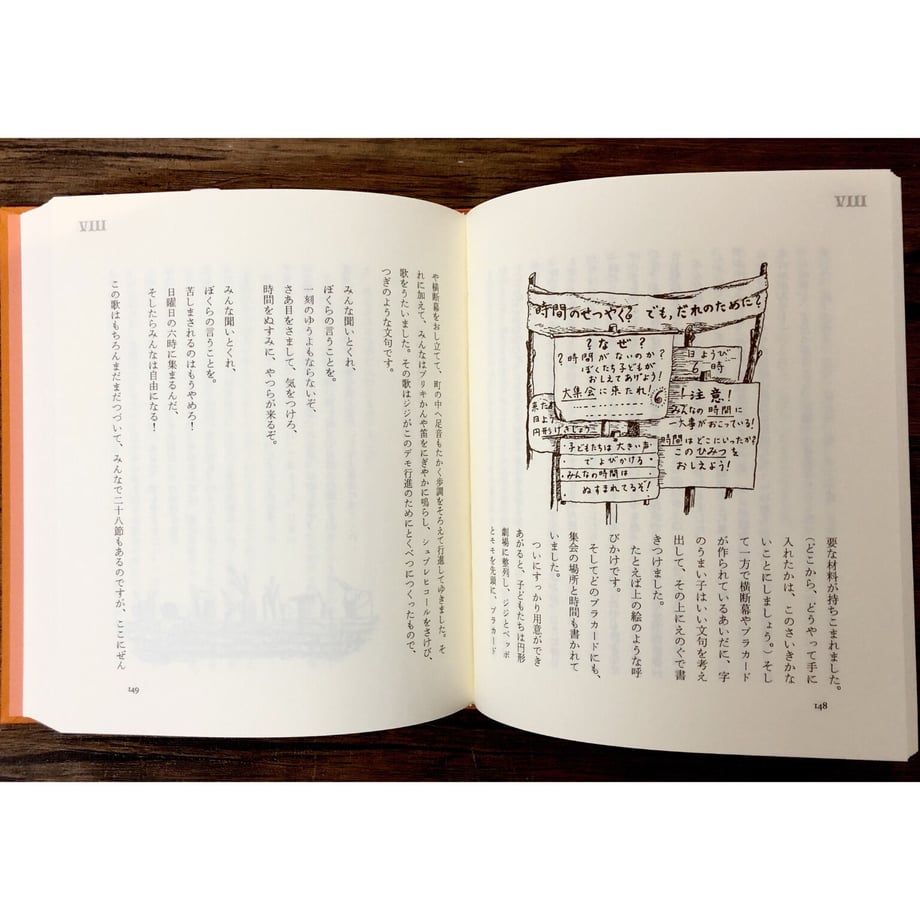 VIII
時間のせつやく? でも、だれのために?
?なぜ?
?時間がないのか?
ぼくたち子どもが
おしえてあげよう!
大集会に来たれ!
日ようび
6時
来た
日よう
円形げきじょう
!注意!
みんなの時間に
一大事がおこっている!
時間はどこにいったか?
このひみつを
おしえよう!
・子どもたちは大きい声
でよびかける
・みんなの時間は
ぬすまれてるぞ!
要な材料が持ちこまれました。
(どこから、どうやって手に
入れたかは、このさいきかな
いことにしましょう。)そし
て一方で横断幕やプラカード
が作られているあいだに、字
のうまい子はいい文句を考え
出して、その上にえのぐで書
きつけました。
たとえば上の絵のような呼
びかけです。
そしてどのプラカードにも、
集会の場所と時間も書かれて
いました。
ついにすっかり用意ができ
あがると、子どもたちは円形
劇場に整列し、ジジとベッポ
とモモを先頭に、プラカード
148
VIII
や横断幕をおし立てて、町の中へ足音もたかく歩調をそろえて行進してゆきました。そ
れに加えて、みんなはブリキかんや笛をにぎやかに鳴らし、シュプレヒコールをさけび、
歌をうたいました。その歌はジジがこのデモ行進のためにとくべつにつくったもので、
つぎのような文句です。
みんな聞いとくれ、
ぼくらの言うことを。
一刻のゆうよもならないぞ、
さあ目をさまして、気をつけろ、
時間をぬすみに、やつらが来るぞ。
みんな聞いとくれ、
ぼくらの言うことを。
苦しまされるのはもうやめろ!
日曜日の六時に集まるんだ、
そしたらみんなは自由になる!
この歌はもちろんまだまだつづいて、みんなで二十八節もあるのですが、ここにぜん
149